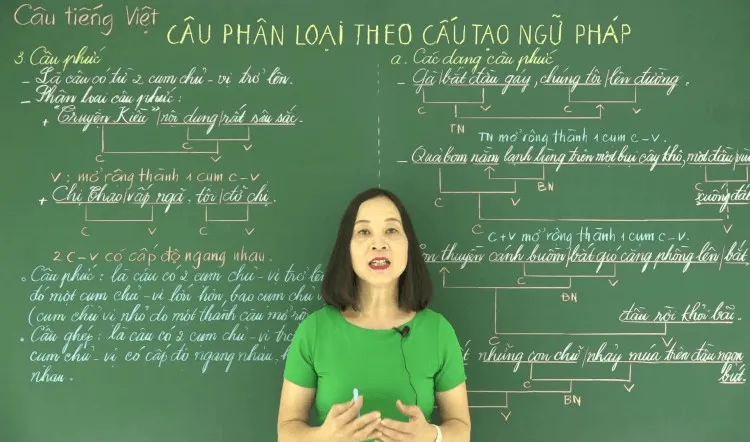 Câu tiếng Việt
CÂU PHÂN LOẠI THEO CẤU TẠO NGỮ PHÁP
3. Câu phức
- Là câu có từ 2 cụm chủ - vị trở lên.
- Phân loại câu phức:
+ "Truyện Kiều" | nội dung | rất sâu sắc.
C V
C V
V: mở rộng thành 1 cụm c-v
+ Chị Thảo | vấp ngã, tôi | đỡ chị.
C V C V
2 C-V có cấp độ ngang nhau.
Câu phức: là câu có 2 cụm chủ - vị trở lên
do một cụm chủ - vị lớn hơn, bao cụm chủ
(cụm chủ vị nhỏ do một thành câu mở
Câu ghép: là câu có 2 cụm chủ - vị trở
cụm chủ - vị có cấp độ ngang nhau,
nhau.
a. Các dạng câu phức
- Gà | bắt đầu gáy, chúng tôi | lên đường.
C V C V
TN
TN mở rộng thành 1 cụm c-v.
- Quả bom nằm lạnh lùng trên một bụi cây khô, một đầu
BN
C V C V
xuống đất
C V
C+V mở rộng thành 1 cụm c-v.
thuyền cánh buồm | bắt gió căng phồng lên | bắt
BN
C
đầu rời khỏi bãi.
C V
những con chữ | nhảy múa trên đầu ngọn
bút.
C V
BN
V